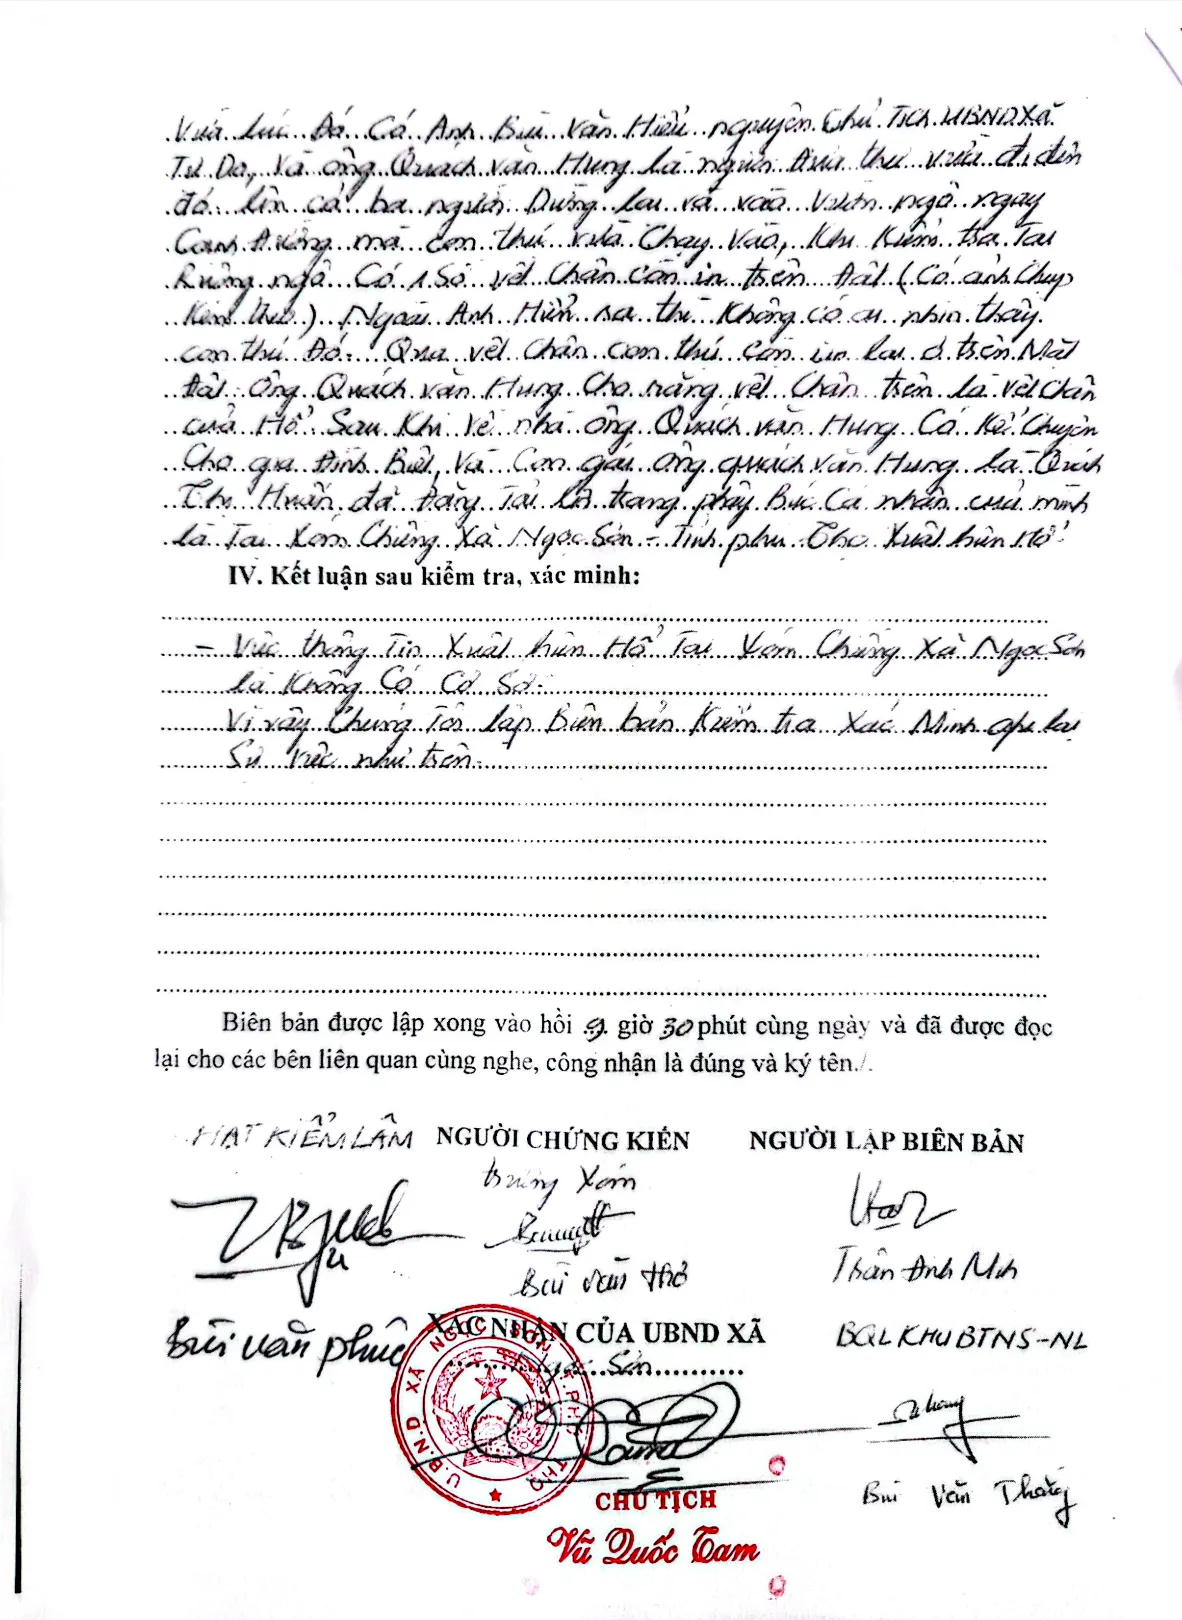 Vừa lúc Đó Có Anh Bùi Văn Hiểu nguyên Chủ Tịch UBND Xã
Tự Do, Và ông Quách Văn Hưng là người Đưa thư vừa đi đến
đó lên cả ba người Dừng lại và vào vườn ngô ngay
Cạnh Đường mà con thú vừa Chạy vào, Khi Kiểm tra Tại
Ruộng ngô Có 1 Số vết Chân còn in trên Đất (Có ảnh Chụp
Kèm theo) Ngoài Anh Hiểu ra thì Không có ai nhìn thấy
con thú Đó. Qua vết chân con thú còn in lại ở trên Mặt
Đất ông Quách văn Hưng Cho rằng vết Chân trên là vết chân
của Hổ. Sau Khi về nhà ông Quách văn Hưng Có Kể Chuyện
Cho gia Đình Biết, và Con gái ông quách văn Hưng là Quách
Thị Huấn đã Đăng Tải lên trang phây Búc Cá nhân của mình
là Tại Xóm Chiềng Xã Ngọc Sơn - Tỉnh phú Thọ Xuất hiện Hổ
IV. Kết luận sau kiểm tra, xác minh:
- Việc thông Tin Xuất hiện Hổ Tại Xóm Chiềng Xã Ngọc Sơn
là Không Có Cơ Sở.
Vì vậy Chúng Tôi lập Biên bản Kiểm tra Xác Minh ghi lại
Sự việc như trên.
Biên bản được lập xong vào hồi 9 giờ 30 phút cùng ngày và đã được đọc
lại cho các bên liên quan cùng nghe, công nhận là đúng và ký tên./.
HẠT KIỂM LÂM NGƯỜI CHỨNG KIẾN NGƯỜI LẬP BIÊN BẢN
trưởng Xóm
Bùi văn thơ
Trần Anh Minh
Bùi văn phúc
XÁC NHẬN CỦA UBND XÃ
BQL KHU BTNS-NL
Ngọc Sơn
U.B.N.D XÃ NGỌC SƠN T.PHÚ THỌ
CHỦ TỊCH
Bùi Văn Thắng
Vũ Quốc Tam